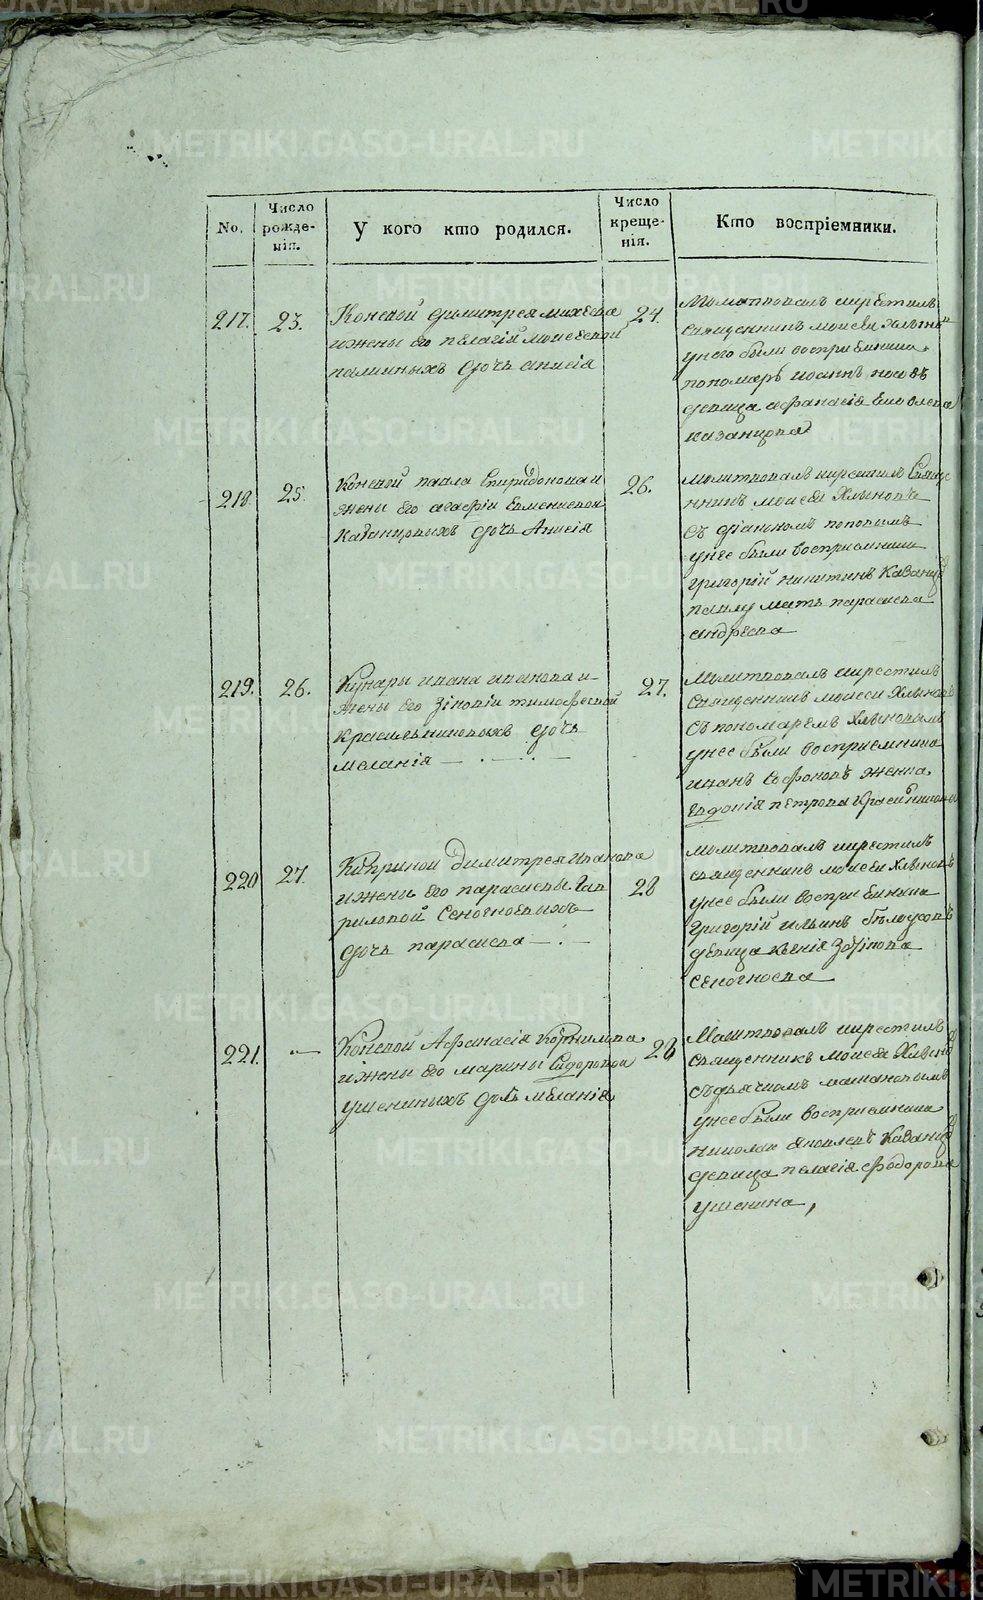 No.
Число рожде-нія.
У кого кто родился.
Число креще-нія.
Кто воспріемники.
217.
23.
Коневой димитрея михеева
и жены его пелагіи моисеевой
палиныхъ дочь анисія
24.
Молитвовалъ и крестилъ
священникъ моисей хлын
у него были восприемники
пономарь иоаннъ носовъ
девица афанасія
казанцова
218.
25.
Коневой павла спиридонова и
жены его агафіи евменьевой
казанцовыхъ дочь Анисія
26.
молитвовалъ и крестилъ свяще
нникъ моисей Хлыновъ
съ діакономъ поповымъ
у нее были восприемники
григорій никитинъ казанц
павлу мать параскева
андреева
219.
26.
Кунары ивана иванова и
жены его зіновіи тимофеевой
красильниковыхъ дочь
меланія
27.
Молитвовалъ и крестилъ
священникъ моисей Хлыновъ
съ пономаремъ хлыновымъ
у нее были восприемники
иванъ софоновъ женка
евдокія петрова красильникова
220
27.
Киприной Димитрея иванова
и жены его параскевы гав
риловой Сеногноевыхъ
дочь параскева
28
молитвовалъ и крестилъ
священникъ моисей хлыновъ
у нее были восприемники
григорій ильинъ белоусовъ
девица ксенія
сеногноева
221.
—
Коневой Афанасія Корнилова
и жены его марины Сидоровой
ушениныхъ дочь меланія
28
Молитвовалъ и крестилъ
священникъ моисей Хлыно
съ дьячкомъ
у нее были восприемники
николай яковлевъ казанц
девица пелагія федорова
ушенина,
METRIKI.GASO-URAL.RU